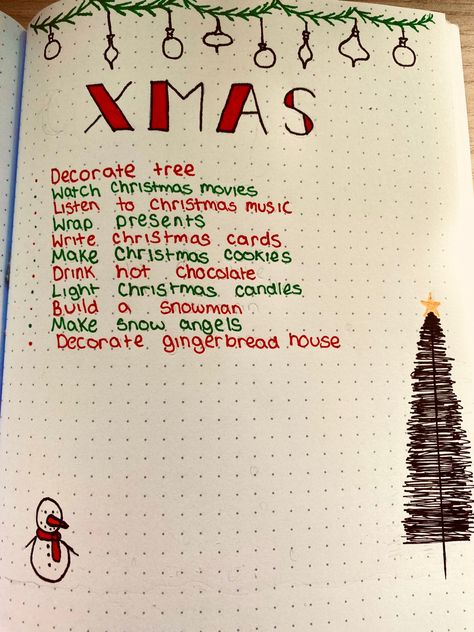 XMAS
· Decorate tree
· Watch christmas movies
· Listen to christmas music
· Wrap presents
· Write christmas cards
· Make Christmas cookies
· Drink hot chocolate
· Light Christmas candles
· Build a snowman
· Make snow angels
· Decorate gingerbread house